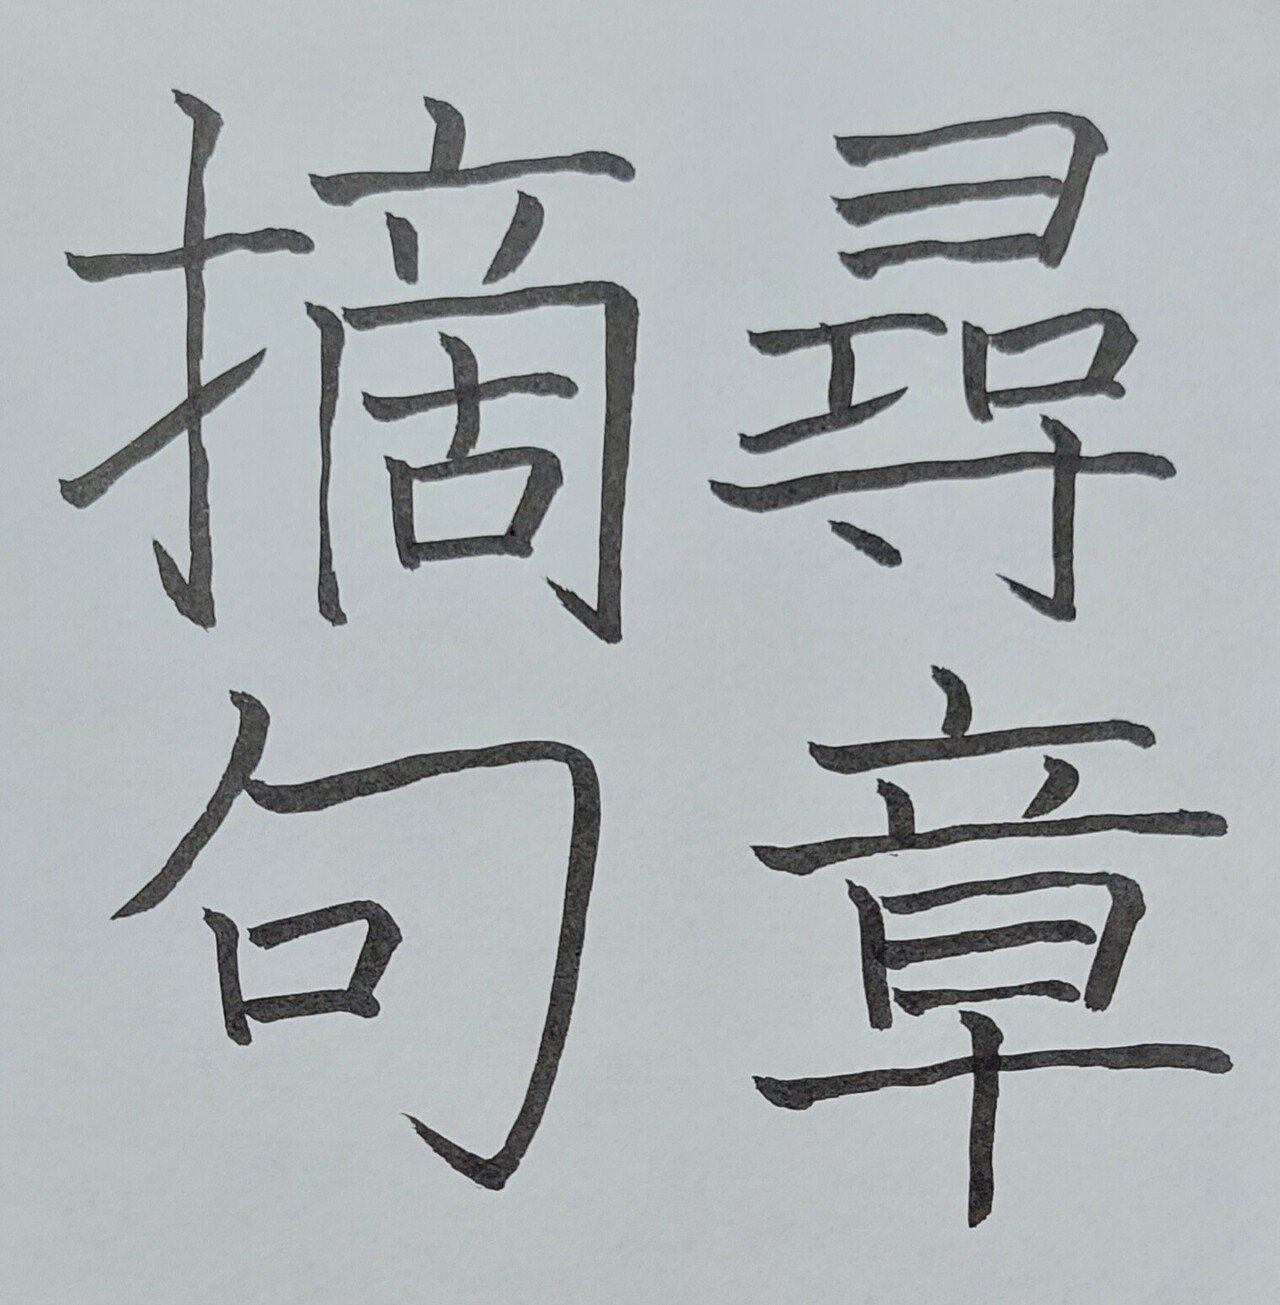 尋章
摘句